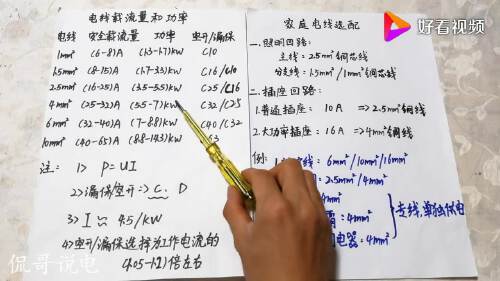 电线载流量和功率
电线 安全载流量 功率 空开/漏保
1mm² (6-8)A (1.3-1.7)KW C10
1.5mm² (8-15)A (1.7-3.3)KW C16/C10
2.5mm² (16-25)A (3.5-5.5)KW C25/C16
4mm² (25-32)A (5.5-7)KW C32/C25
6mm² (32-40)A (7-8.8)KW C40/C32
10mm² (40-65)A (8.8-14.3)KW 63
注: 1> P=UI
2>漏保/空开=> C. D
3> I≈4.5/KW
4>空开/漏保选择为工作电流的
(1.05-1.2)倍左右
侃哥说电
好看视频
家庭电线选配
一.照明回路:
主线=2.5mm²铜芯线
分支线=1.5mm²/1mm²铜芯线
二.插座回路:
1.普通插座: 10A =>2.5mm²铜线
2.大功率插座: 16A =>4mm²铜线
例:
线: 6mm²/10mm²/16mm²
2.5mm²/4mm²
4mm²
=4mm²
电器=4mm²
专线,单独供电